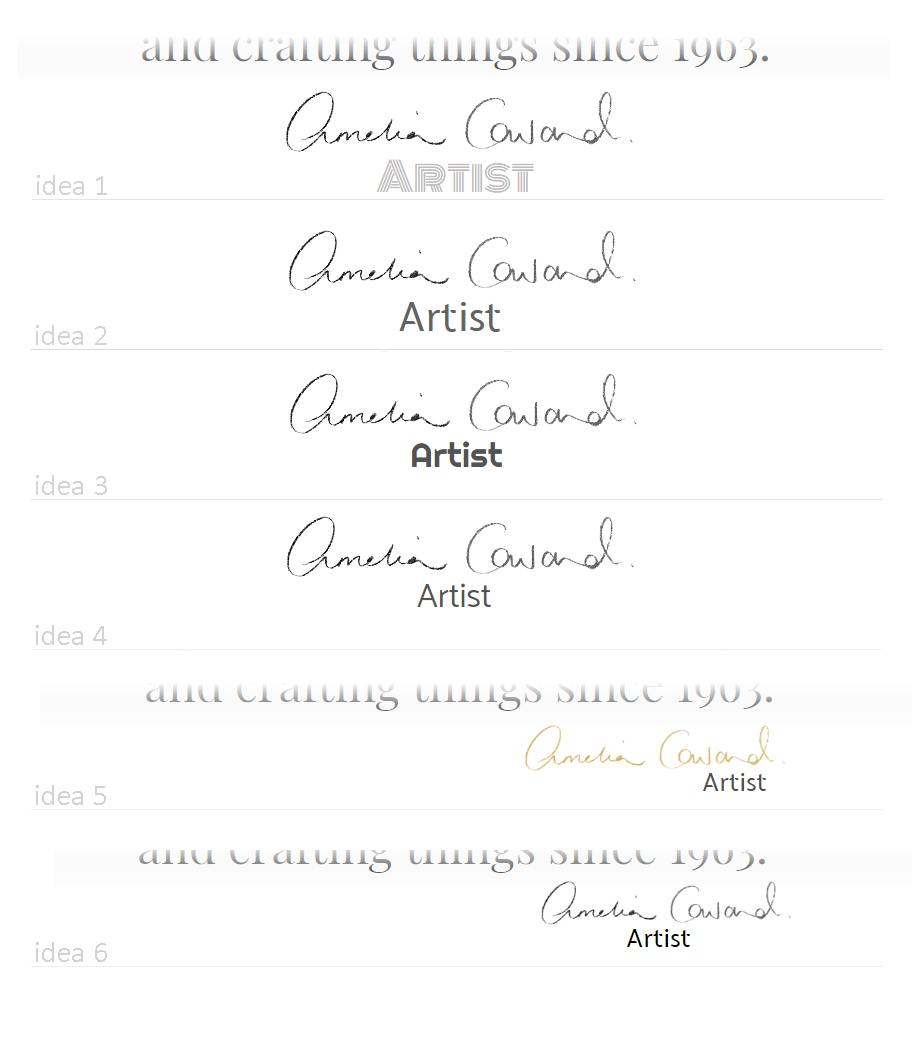 and crafting things since 1963.
Amelia Coward.
ARTIST
idea 1
Amelia Coward.
Artist
idea 2
Amelia Coward.
Artist
idea 3
Amelia Coward.
Artist
idea 4
and crafting things since 1963.
Amelia Coward.
Artist
idea 5
and crafting things since 1963.
Amelia Coward.
Artist
idea 6